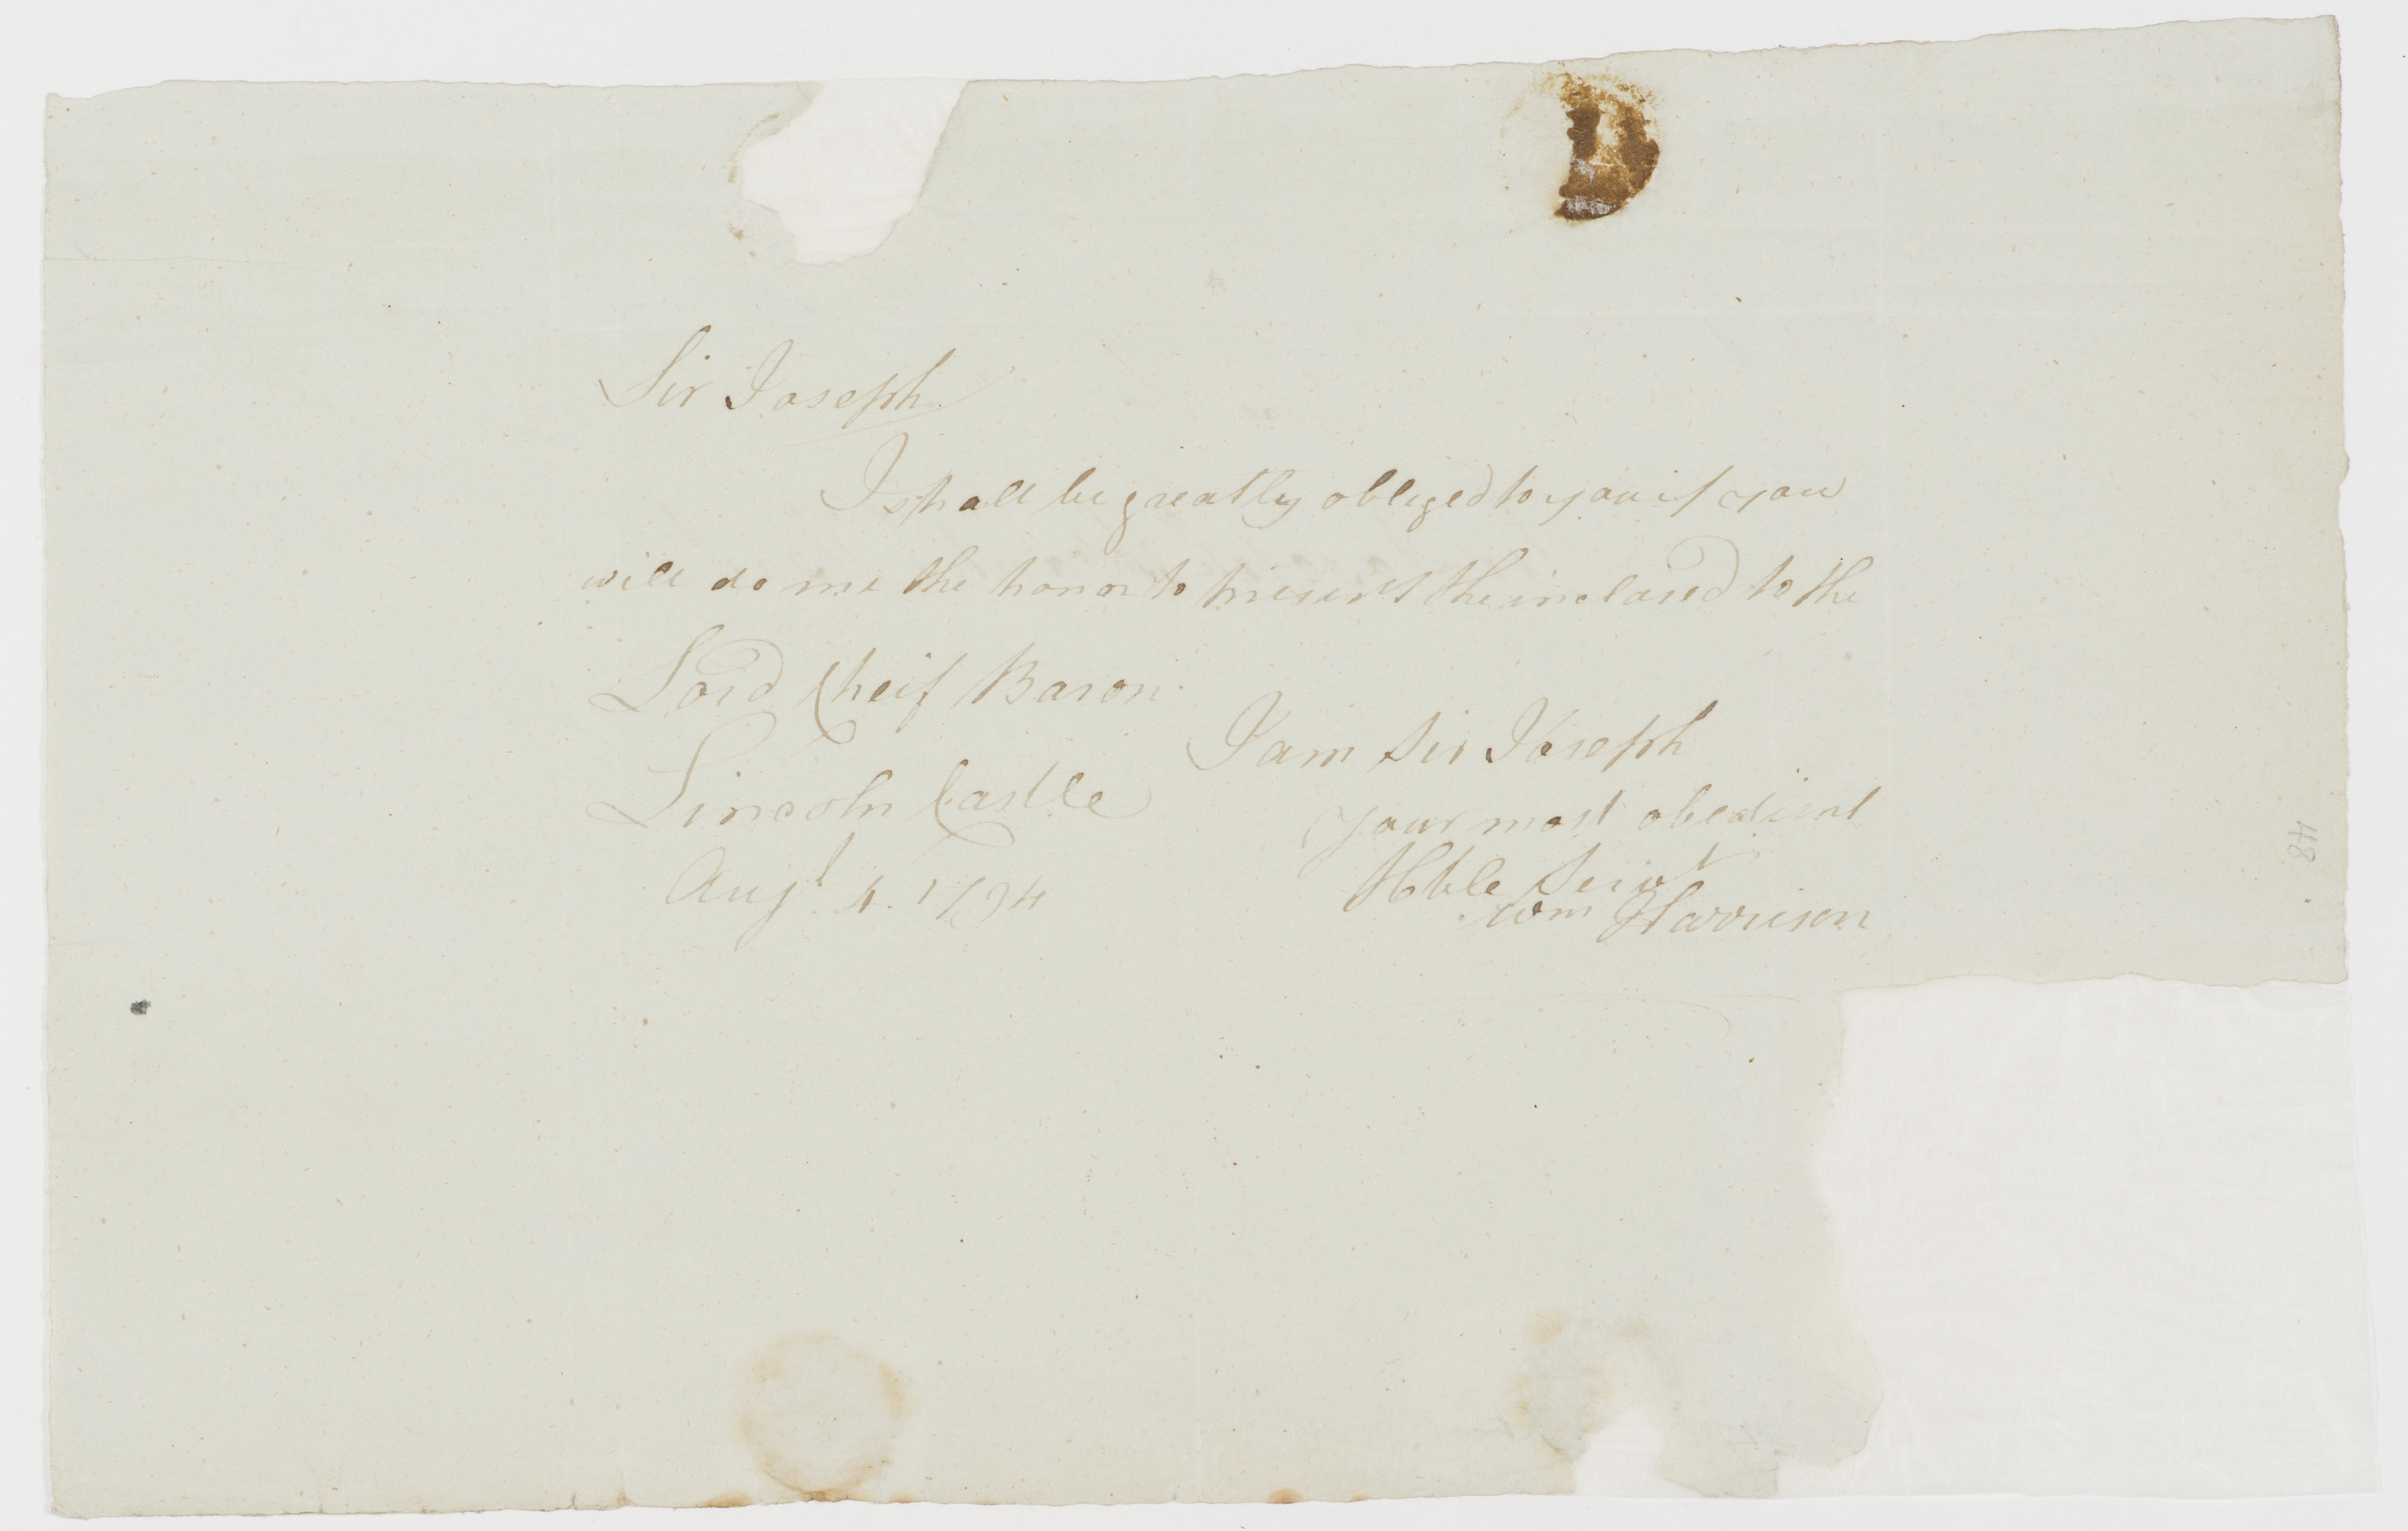 Sir Joseph
I shall be greatly obliged to you if you
will do me the honor to present the inclosed to the
Lord Cheif Baron
I am Sir Joseph
your most obedient
Hble Servt
Wm Harrison
Lincoln Castle
Augt 4. 1794
48